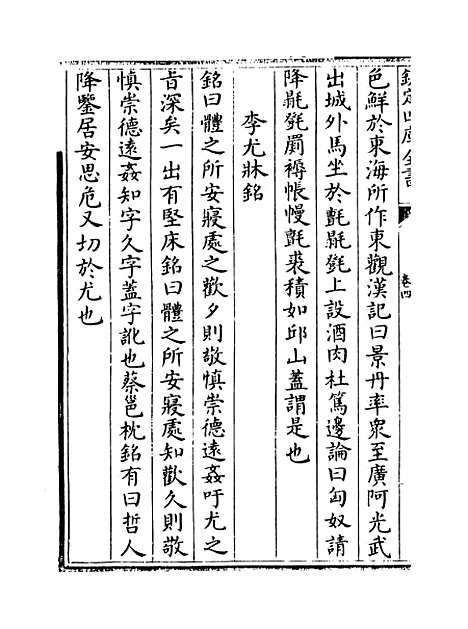 欽定四庫全書
卷四
色鮮於東海所作東觀漢記曰景丹率衆至廣阿光武
出城外馬坐於氈毾㲪上設酒肉杜篤邊論曰匈奴請
降毾㲪罽褥帳幔氈裘積如邱山蓋謂是也
李尤牀銘
銘曰體之所安寢處之歡夕則敬慎崇德遠姦吁尤之
旨深矣一出有堅床銘曰體之所安寢處知歡久則敬
慎崇德遠姦知字久字蓋字訛也蔡邕枕銘有曰哲人
降鑒居安思危又切於尤也